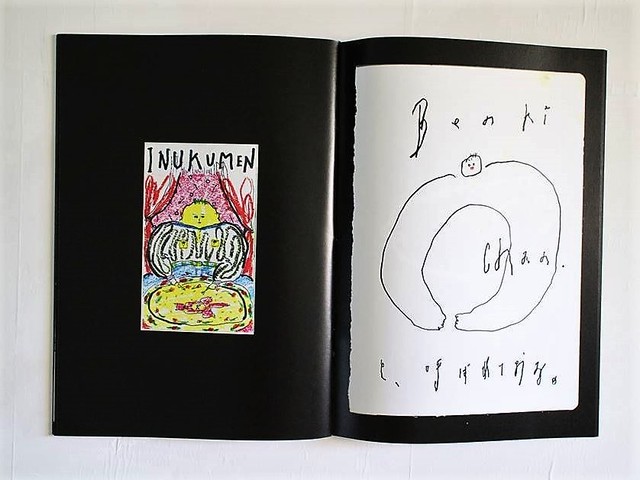 INUKUMEN
Benki
Chan.
と、呼ばれて